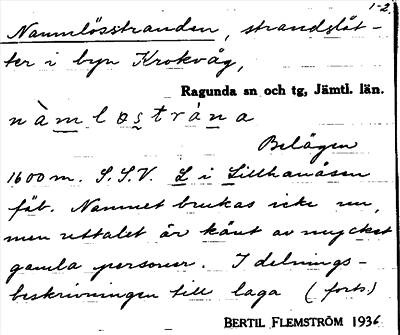 1-2
Namnlösstranden, strandslåt-
ter i byn Krokvåg,
Ragunda sn och tg, Jämtl. län.
nàmløstrána
Belägen
1600 m. S.S.V. L i Lillhanåsen
fäb. Namnet brukas icke nu,
men uttalet är känt av mycket
gamla personer. I delnings-
beskrivningen till laga (forts)
BERTIL FLEMSTRÖM 1936